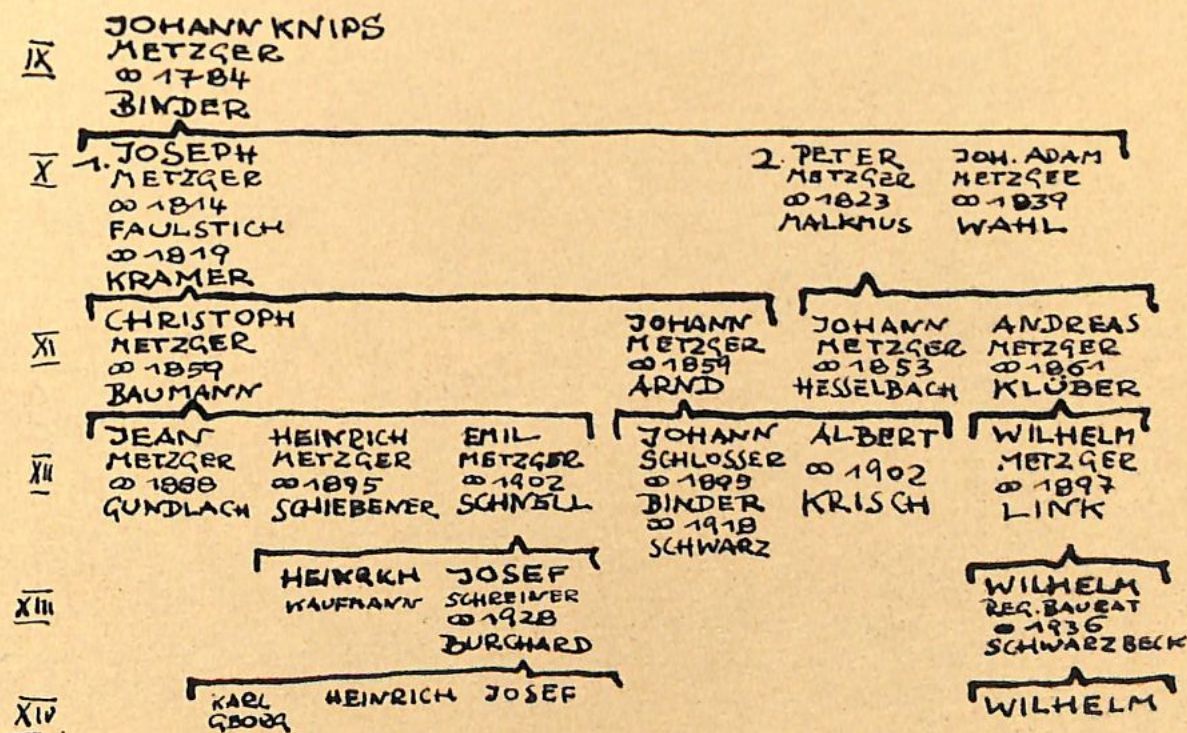 IX
JOHANN KNIPS
METZGER
∞ 1784
BINDER
X
1. JOSEPH
METZGER
∞ 1814
FAULSTICH
∞ 1819
KRAMER
2. PETER
METZGER
∞ 1823
MALKMUS
JOH. ADAM
METZGER
∞ 1839
WAHL
XI
CHRISTOPH
METZGER
∞ 1859
BAUMANN
JOHANN
METZGER
∞ 1859
ARND
JOHANN
METZGER
∞ 1853
HESSELBACH
ANDREAS
METZGER
∞ 1861
KLÜBER
XII
JEAN
METZGER
∞ 1888
GUNDLACH
HEINRICH
METZGER
∞ 1895
SCHIEBENER
EMIL
METZGER
∞ 1902
SCHNELL
JOHANN
SCHLOSSER
∞ 1899
BINDER
∞ 1918
SCHWARZ
ALBERT
∞ 1902
KRISCH
WILHELM
METZGER
∞ 1897
LINK
XIII
HEINRICH
KAUFMANN
JOSEF
SCHREINER
∞ 1928
BURCHARD
WILHELM
REG. BAURAT
∞ 1936
SCHWARZBECK
XIV
KARL
GEORG
HEINRICH
JOSEF
WILHELM